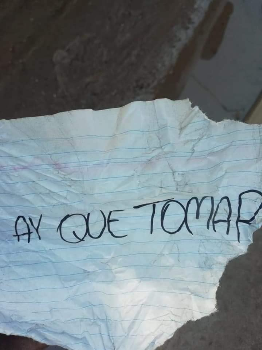 AY QUE TOMAR